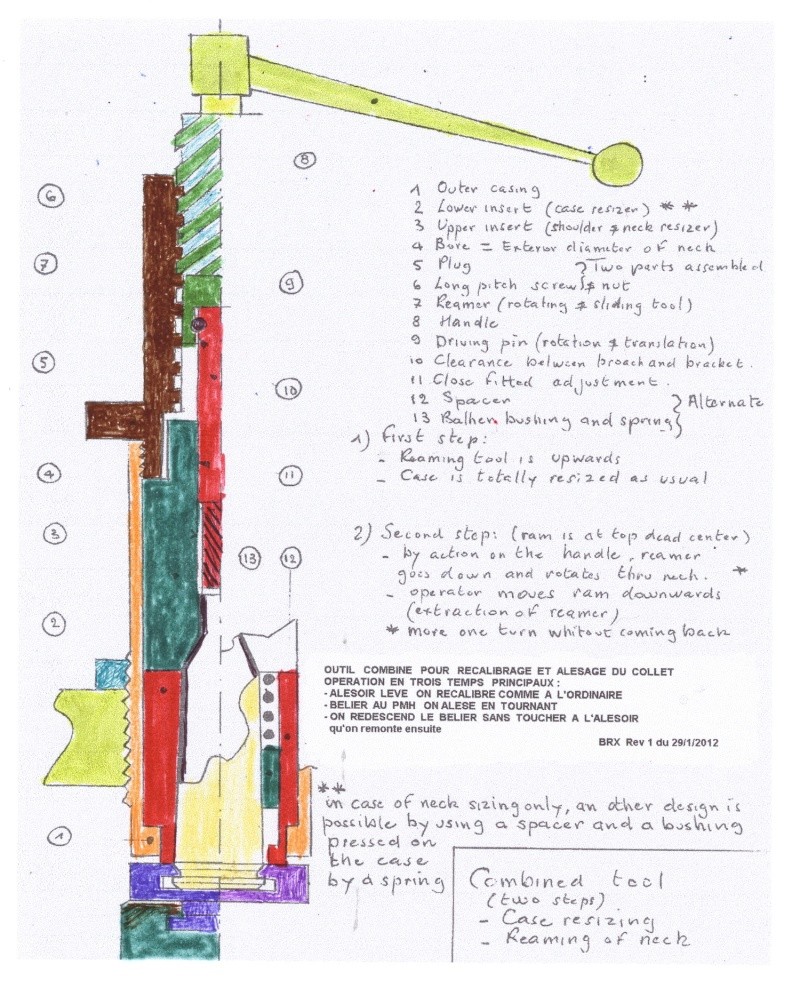 8
6
7
9
5
10
4
11
3
13
12
2
1
1 Outer casing
2 Lower insert (case resizer) * *
3 Upper insert (shoulder & neck resizer)
4 Bore = Exterior diameter of neck
5 Plug } Two parts assembled
6 Long pitch screw & nut
7 Reamer (rotating & sliding tool)
8 Handle
9 Driving pin (rotation & translation)
10 Clearance between broach and bracket.
11 Close fitted adjustment.
12 Spacer } Alternate
13 Balhen bushing and spring
1) First step:
- Reaming tool is upwards
- Case is totally resized as usual
2) Second step: (ram is at top dead center)
- by action on the handle, reamer
goes down and rotates thru neck. *
- operator moves ram downwards
(extraction of reamer)
* more one turn whitout coming back
OUTIL COMBINE POUR RECALIBRAGE ET ALESAGE DU COLLET
OPERATION EN TROIS TEMPS PRINCIPAUX :
- ALESOIR LEVE ON RECALIBRE COMME A L'ORDINAIRE
- BELIER AU PMH ON ALESE EN TOURNANT
- ON REDESCEND LE BELIER SANS TOUCHER A L'ALESOIR
qu'on remonte ensuite
BRX Rev 1 du 29/1/2012
* *
in case of neck sizing only, an other design is
possible by using a spacer and a bushing
pressed on
the case
by a spring
Combined tool
(two steps)
- Case resizing
- Reaming of neck